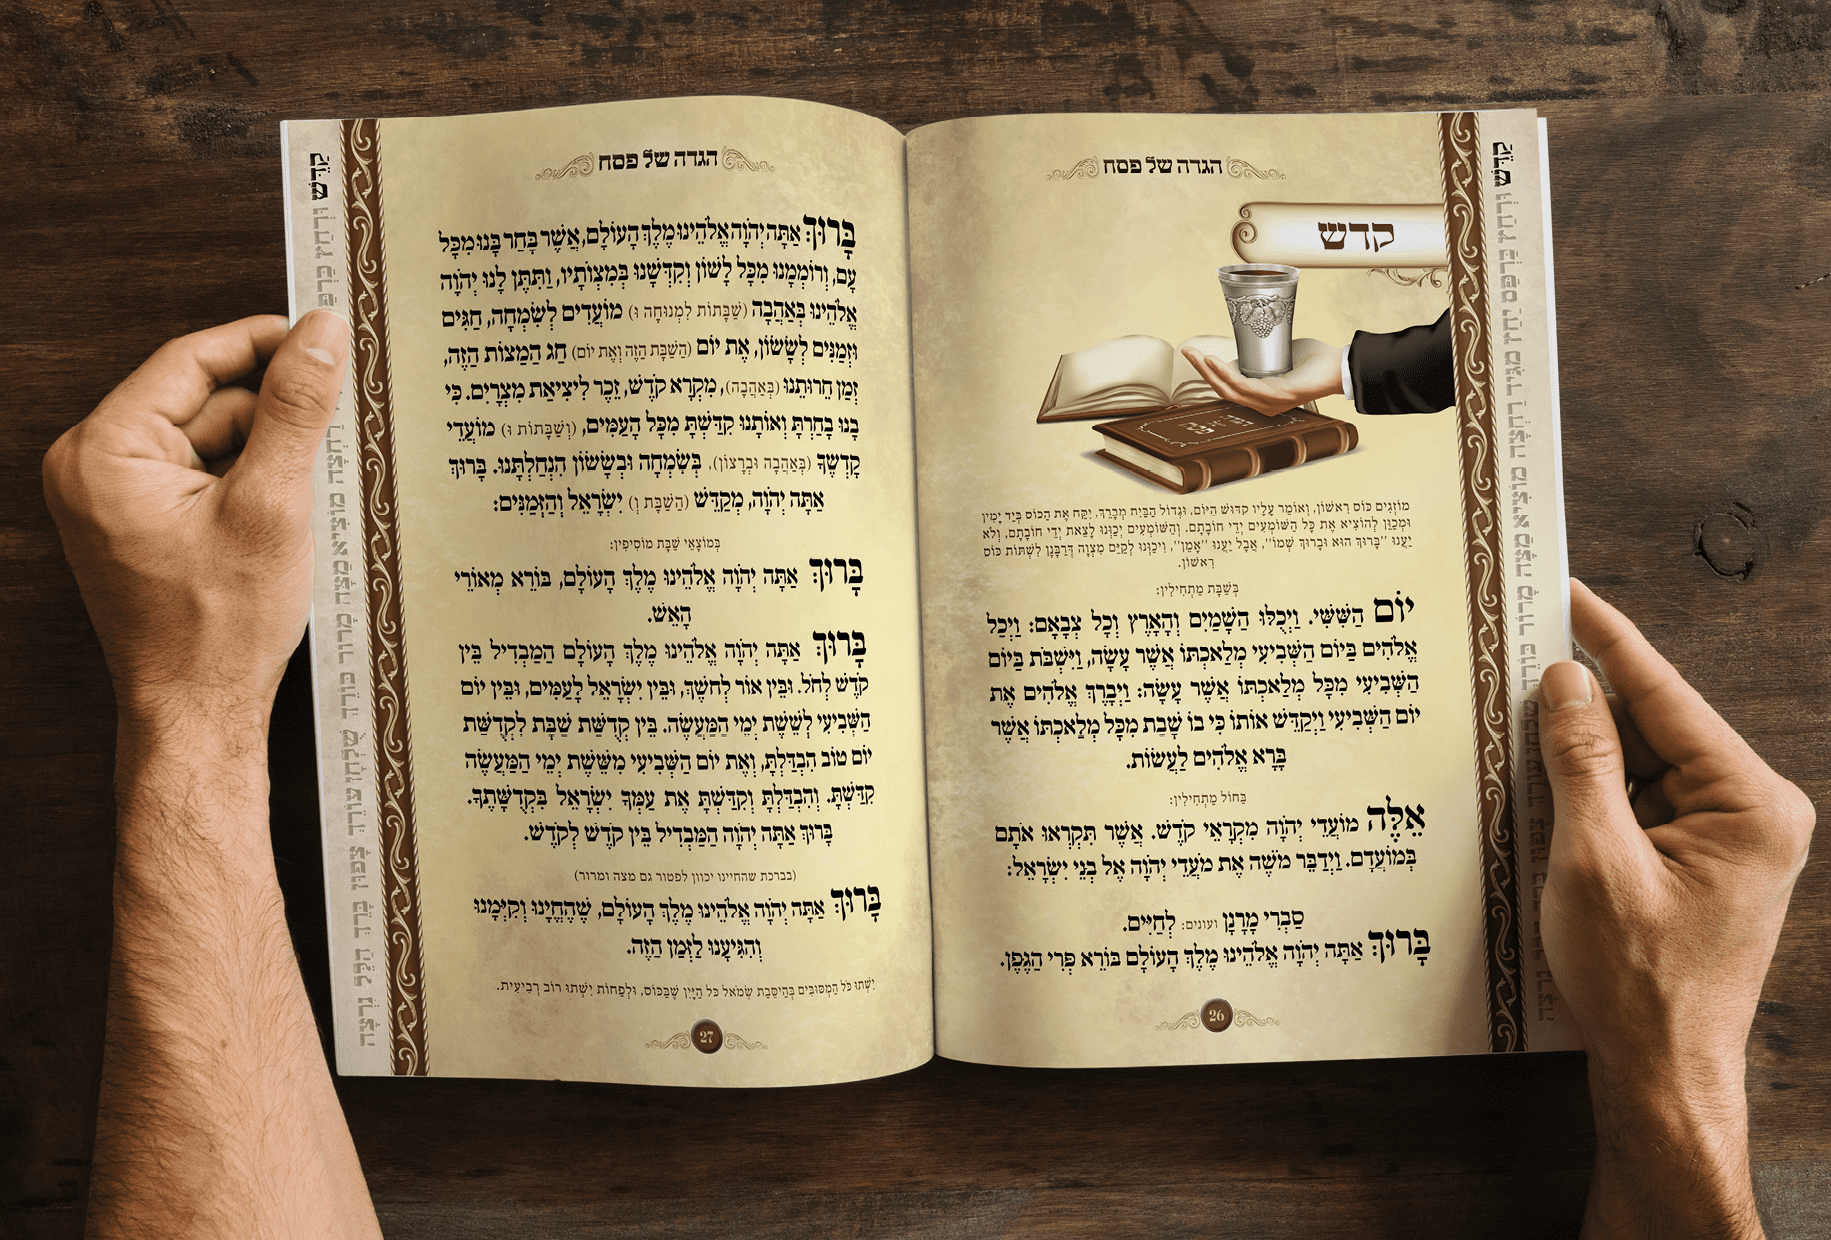 הגדה של פסח
קדש
מוֹזְגִים כּוֹס רִאשׁוֹן, וְאוֹמֵר עָלָיו קִדּוּשׁ הַיּוֹם, וּגְדוֹל הַבַּיִת מְבָרֵךְ. יִקַּח אֶת הַכּוֹס בְּיַד יָמִין
וּמְכַוֵּן לְהוֹצִיא אֶת כָּל הַשּׁוֹמְעִים יְדֵי חוֹבָתָם. וְהַשּׁוֹמְעִים יְכַוְּנוּ לָצֵאת יְדֵי חוֹבָתָם, וְלֹא
יַעֲנוּ "בָּרוּךְ הוּא וּבָרוּךְ שְׁמוֹ", אֲבָל יַעֲנוּ "אָמֵן", וִיכַוְּנוּ לְקַיֵּם מִצְוָה דְּרַבָּנָן לִשְׁתּוֹת כּוֹס
רִאשׁוֹן.
בְּשַׁבָּת מַתְחִילִין:
יוֹם הַשִּׁשִּׁי. וַיְכֻלּוּ הַשָּׁמַיִם וְהָאָרֶץ וְכָל צְבָאָם: וַיְכַל
אֱלֹהִים בַּיּוֹם הַשְּׁבִיעִי מְלַאכְתּוֹ אֲשֶׁר עָשָׂה, וַיִּשְׁבֹּת בַּיּוֹם
הַשְּׁבִיעִי מִכָּל מְלַאכְתּוֹ אֲשֶׁר עָשָׂה: וַיְבָרֶךְ אֱלֹהִים אֶת
יוֹם הַשְּׁבִיעִי וַיְקַדֵּשׁ אוֹתוֹ כִּי בוֹ שָׁבַת מִכָּל מְלַאכְתּוֹ אֲשֶׁר
בָּרָא אֱלֹהִים לַעֲשׂוֹת.
בַּחוֹל מַתְחִילִין:
אֵלֶּה מוֹעֲדֵי יְהֹוָה מִקְרָאֵי קֹדֶשׁ. אֲשֶׁר תִּקְרְאוּ אֹתָם
בְּמוֹעֲדָם. וַיְדַבֵּר מֹשֶׁה אֶת מֹעֲדֵי יְהֹוָה אֶל בְּנֵי יִשְׂרָאֵל:
סַבְרִי מָרָנָן ועונים: לְחַיִּים.
בָּרוּךְ אַתָּה יְהֹוָה אֱלֹהֵינוּ מֶלֶךְ הָעוֹלָם בּוֹרֵא פְּרִי הַגֶּפֶן.
26
הגדה של פסח
בָּרוּךְ אַתָּה יְהֹוָה אֱלֹהֵינוּ מֶלֶךְ הָעוֹלָם, אֲשֶׁר בָּחַר בָּנוּ מִכָּל
עָם, וְרוֹמְמָנוּ מִכָּל לָשׁוֹן וְקִדְּשָׁנוּ בְּמִצְוֹתָיו, וַתִּתֶּן לָנוּ יְהֹוָה
אֱלֹהֵינוּ בְּאַהֲבָה (שַׁבָּתוֹת לִמְנוּחָה וּ) מוֹעֲדִים לְשִׂמְחָה, חַגִּים
וּזְמַנִּים לְשָׂשׂוֹן, אֶת יוֹם (הַשַּׁבָּת הַזֶּה וְאֶת יוֹם) חַג הַמַּצּוֹת הַזֶּה,
זְמַן חֵרוּתֵנוּ (בְּאַהֲבָה), מִקְרָא קֹדֶשׁ, זֵכֶר לִיצִיאַת מִצְרָיִם. כִּי
בָנוּ בָחַרְתָּ וְאוֹתָנוּ קִדַּשְׁתָּ מִכָּל הָעַמִּים, (וְשַׁבָּתוֹת וּ) מוֹעֲדֵי
קָדְשֶׁךָ (בְּאַהֲבָה וּבְרָצוֹן), בְּשִׂמְחָה וּבְשָׂשׂוֹן הִנְחַלְתָּנוּ. בָּרוּךְ
אַתָּה יְהֹוָה, מְקַדֵּשׁ (הַשַּׁבָּת וְ) יִשְׂרָאֵל וְהַזְּמַנִּים:
בְּמוֹצָאֵי שַׁבָּת מוֹסִיפִין:
בָּרוּךְ אַתָּה יְהֹוָה אֱלֹהֵינוּ מֶלֶךְ הָעוֹלָם, בּוֹרֵא מְאוֹרֵי
הָאֵשׁ.
בָּרוּךְ אַתָּה יְהֹוָה אֱלֹהֵינוּ מֶלֶךְ הָעוֹלָם הַמַּבְדִּיל בֵּין
קֹדֶשׁ לְחֹל. וּבֵין אוֹר לְחֹשֶׁךְ, וּבֵין יִשְׂרָאֵל לָעַמִּים, וּבֵין יוֹם
הַשְּׁבִיעִי לְשֵׁשֶׁת יְמֵי הַמַּעֲשֶׂה. בֵּין קְדֻשַּׁת שַׁבָּת לִקְדֻשַּׁת
יוֹם טוֹב הִבְדַּלְתָּ, וְאֶת יוֹם הַשְּׁבִיעִי מִשֵּׁשֶׁת יְמֵי הַמַּעֲשֶׂה
קִדַּשְׁתָּ. וְהִבְדַּלְתָּ וְקִדַּשְׁתָּ אֶת עַמְּךָ יִשְׂרָאֵל בִּקְדֻשָּׁתֶךָ.
בָּרוּךְ אַתָּה יְהֹוָה הַמַּבְדִּיל בֵּין קֹדֶשׁ לְקֹדֶשׁ.
(בברכת שהחיינו יכוון לפטור גם מצה ומרור)
בָּרוּךְ אַתָּה יְהֹוָה אֱלֹהֵינוּ מֶלֶךְ הָעוֹלָם, שֶׁהֶחֱיָנוּ וְקִיְּמָנוּ
וְהִגִּיעָנוּ לַזְּמַן הַזֶּה.
יִשְׁתּוּ כֹּל הַמְסוּבִּים בְּהֲיסֵּבַת שְׂמֹאל כֹּל הַיַּיִן שֶׁבַּכּוֹס, וּלְפָחוֹת יִשְׁתּוּ רוֹב רְבִיעִית.
27